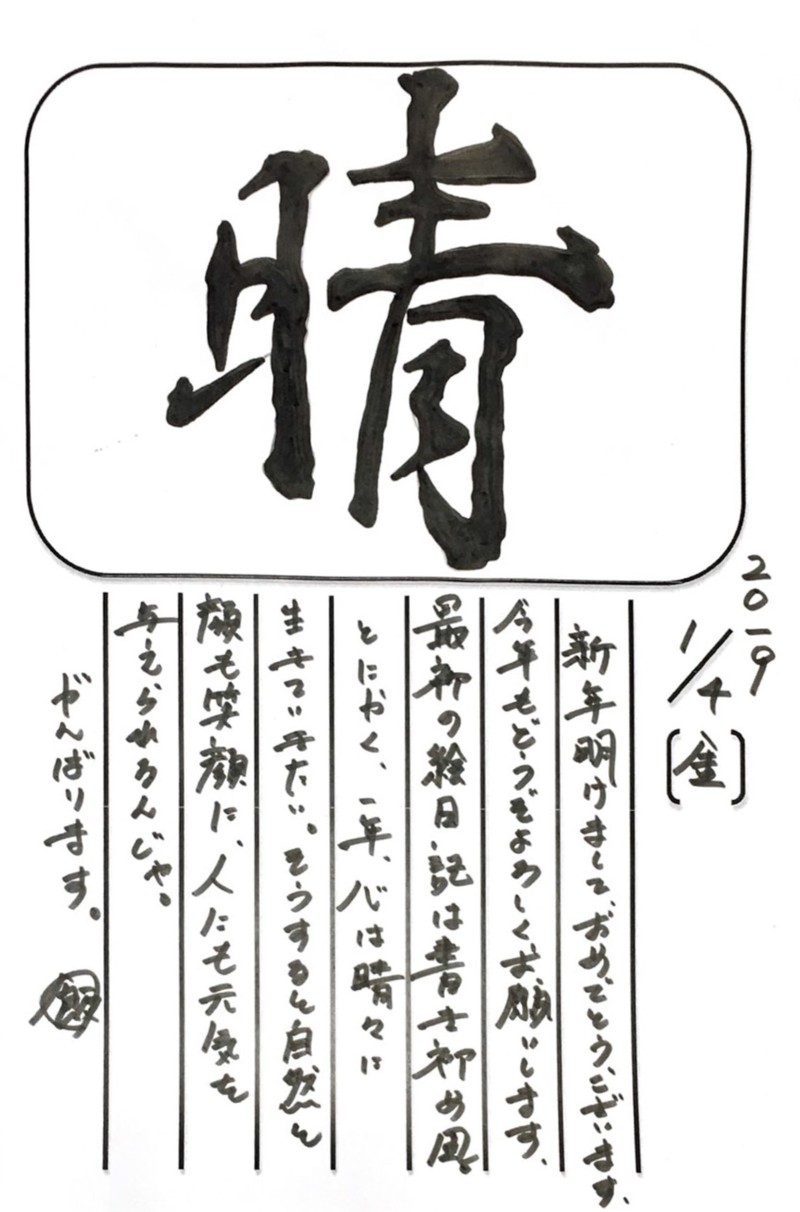 晴
2019
1/4
[金]
新年明けまして、おめでとうございます、
今年もどうぞよろしくお願いします、
最初の絵日記は書き初め風。
とにかく、一年、心は晴々に
生きていきたい。そうすると自然と
顔も笑顔に、人にも元気を
与えられるんじゃ。
がんばります。